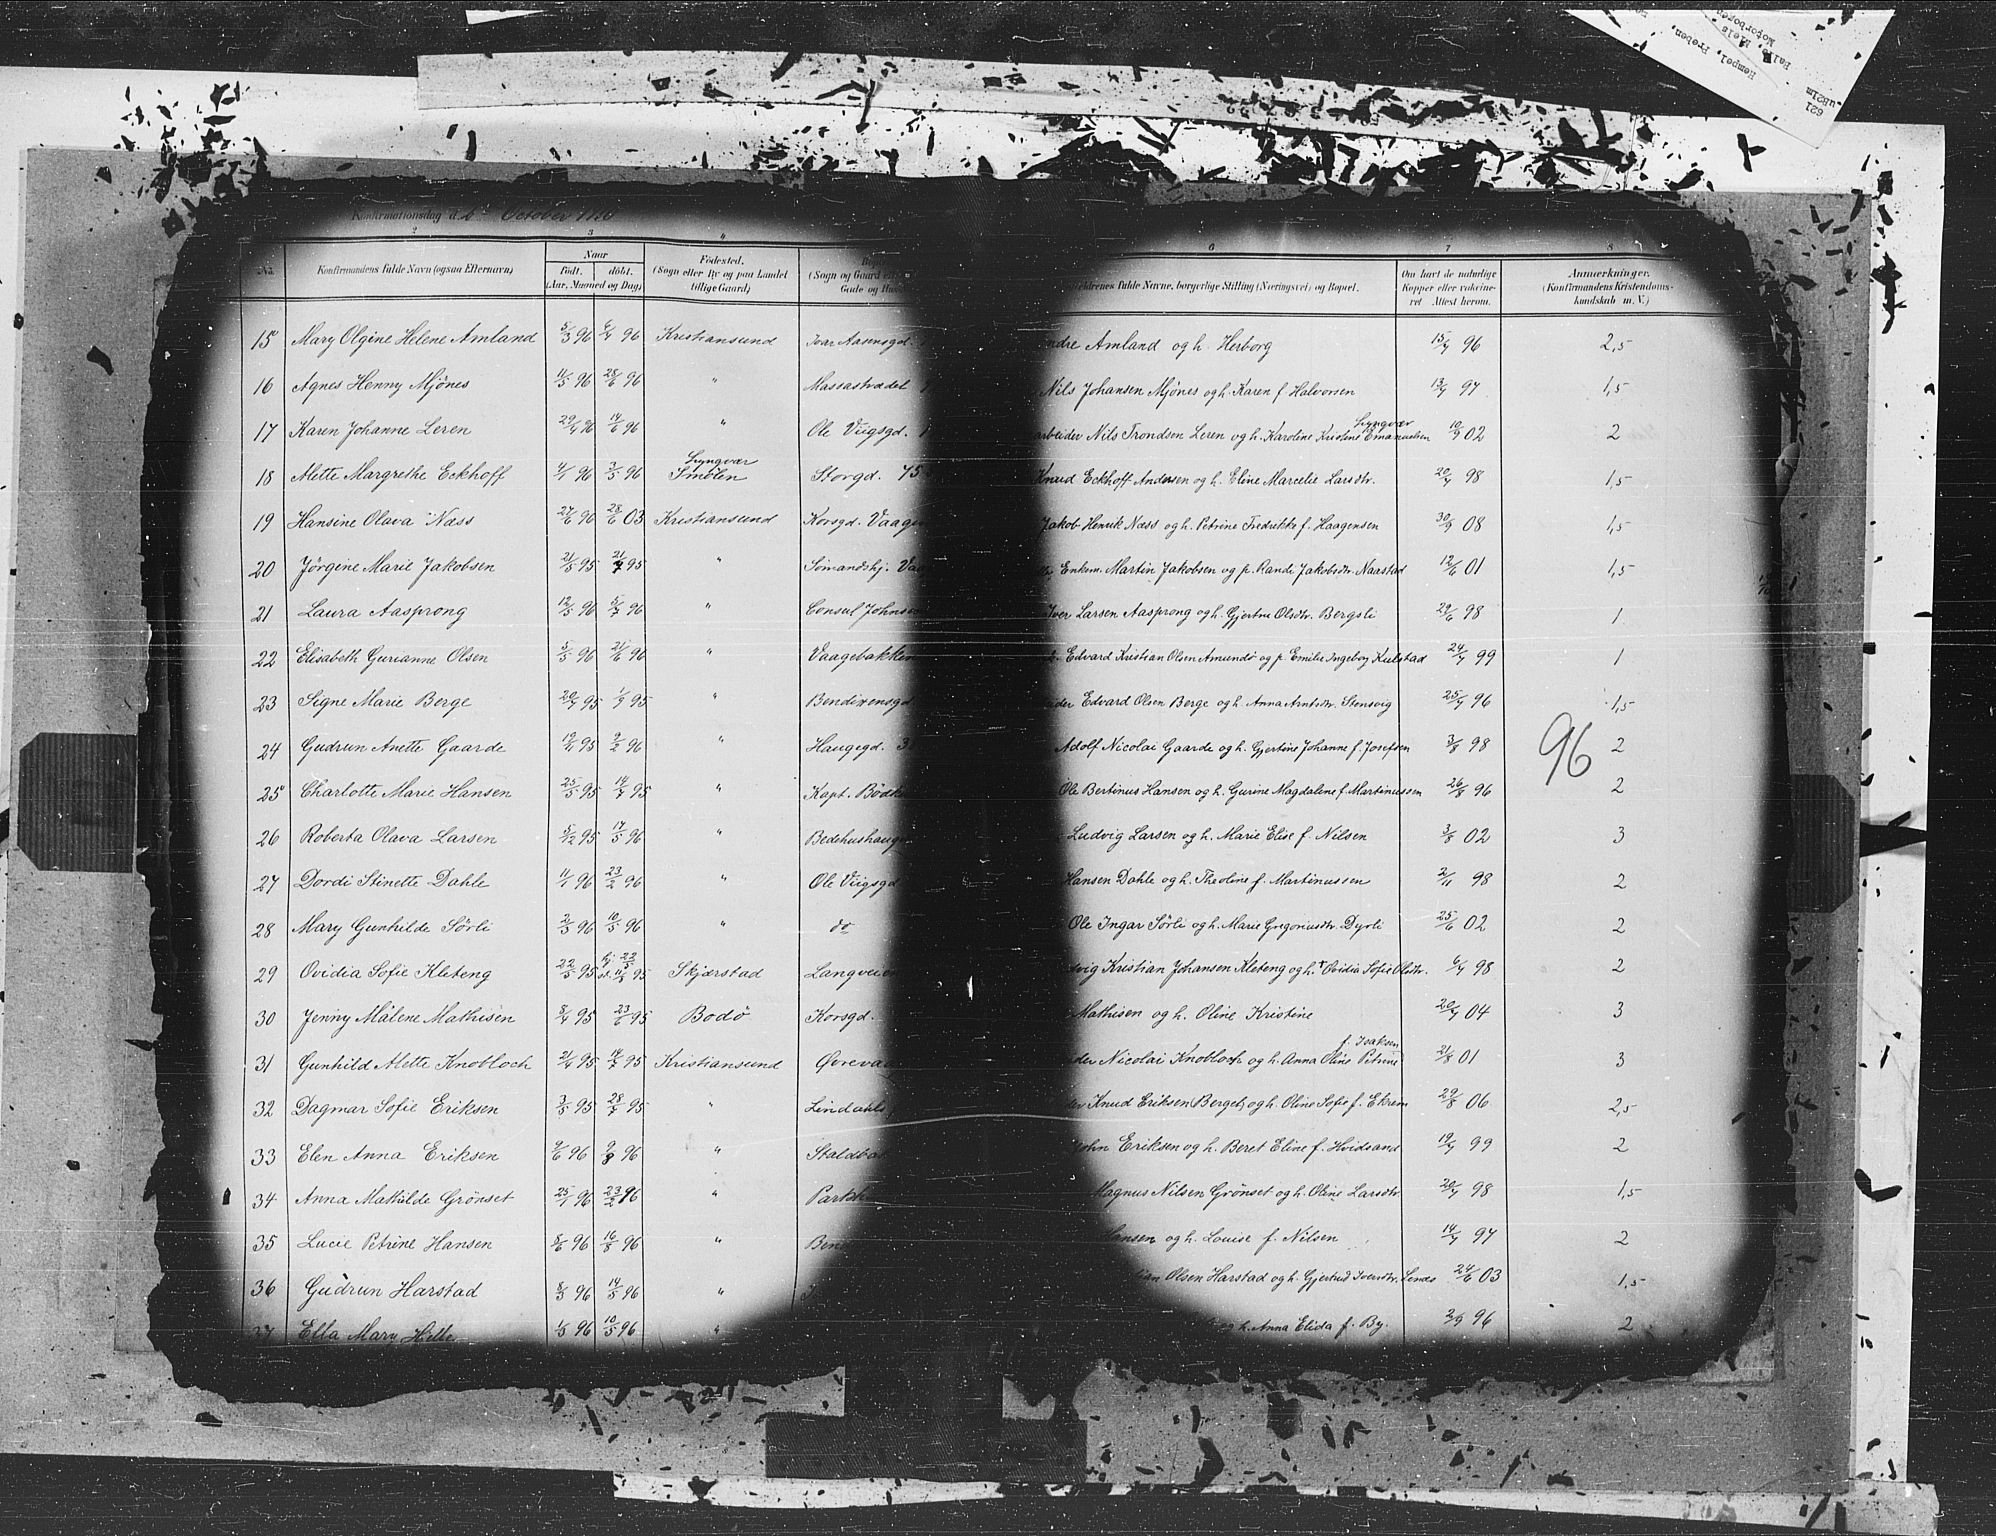 621
u821m
Hempel, Preben.
Palle Niels
Motorboten
Konfirmationsdag d. October
2 3 4
No. Konfirmandens fulde Navn (ogsaa Efternavn) Naar Født. døbt. (Aar, Maaned og Dag) Fødested. (Sogn eller By og paa Landet tillige Gaard) (Sogn og Gaard Gade og
6 7 8
fulde Navne, borgerlige Stilling (Næringsvei) og Bopæl. Om havt de naturlige Kopper eller vakcineret Attest herom. Anmærkninger. (Konfirmandens Kristendomskundskab m. V.)
15 Mary Olgine Helene Amland 5/3 96 6/4 96 Kristiansund Ivar Aasensgd. Amland og h. Herborg 15/7 96 2,5
16 Agnes Henny Mjönes 11/5 96 28/6 96 " Massastrædet Nils Johansen Mjönes og h. Karen f. Halvorsen 13/7 97 1,5
17 Karen Johanne Leren 29/4 96 14/6 96 " Ole Viigsgd. arbeider Nils Trondsen Leren og h. Karoline Kristine Emanuelsen Lyngvær 10/9 02 2
18 Mette Margrethe Eckhoff 4/1 96 3/5 96 Lyngvær Smølen Storgd. 75 Knud Eckhoff Andersen og h. Eline Marcelie Larsdtr. 20/7 98 1,5
19 Hansine Olava Næss 27/6 96 28/6 03 Kristiansund Korsgd. Jakob Henrik Næss og h. Petrine Fredrikke f. Haagensen 30/9 08 1,5
20 Jørgine Marie Jakobsen 21/5 95 21/7 95 " Sömandshj. Enkem. Martin Jakobsen og p. Rande Jakobsdtr. Naastad 12/6 01 1,5
21 Laura Aasprong 12/5 96 5/7 96 " Consul Johns Iver Larsen Aasprong og h. Gjertine Olsdtr. Bergsli 29/6 98 1
22 Elisabeth Gurianne Olsen 3/5 96 21/6 96 " Vaagebakken Edvard Kristian Olsen Amundö og p. Emilie Ingeborg Kulstad 24/7 99 1
23 Signe Marie Berge 20/7 95 1/9 95 " Bendixensgd Edvard Olsen Berge og h. Anna Arntsdtr. Stensvig 25/7 96 1,5
24 Gudrun Anette Gaarde 95 9/2 96 " Haugegd. Adolf Nicolai Gaarde og h. Gjertine Johanne f. Josefsen 3/8 98 2
96
25 Charlotte Marie Hansen 25/5 95 14/7 95 " Kapt. Bödk Ole Bertinus Hansen og h. Gurine Magdalene f. Martinussen 26/8 96 2
26 Roberta Olava Larsen 5/12 95 17/5 96 " Bedehushaug Ludvig Larsen og h. Marie Elise f. Nilsen 3/8 02 3
27 Dordi Stinette Dahle 11/1 96 23/2 96 " Ole Viigsgd Hansen Dahle og h. Theoline f. Martinussen 2/11 98 2
28 Mary Gunhilde Sörli 2/3 96 10/5 96 " do Ole Ingar Sörli og h. Marie Gregoriusdtr. Dyrli 25/6 02 2
29 Ovidia Sofie Kleteng 22/5 95 95 Skjærstad Langveien Kristian Johansen Kleteng og h. Ovidia Sofie Olsdtr. 6/7 98 2
30 Jenny Målene Mathisen 8/4 95 23/6 95 Bodö Korsgd. Mathisen og h. Oline Kristine 20/7 04 3
31 Gunhild Mette Knobloch 21/4 95 14/7 95 Kristiansund Nicolai Knobloch og h. Anna Oline Petrine f. Isaksen 21/8 01 3
32 Dagmar Sofie Eriksen 3/5 95 28/7 95 " Lindahls Knud Eriksen Berget og h. Oline Sofie f. Ekrem 29/8 06 2,5
33 Elen Anna Eriksen 9/6 96 9/8 96 " Staldba John Eriksen og h. Beret Eline f. Hvidsand 19/7 99 2
34 Anna Mathilde Grönset 25/1 96 23/2 96 " Park Magnus Nilsen Grönset og h. Oline Larsdtr. 20/7 98 1,5
35 Lucie Petrine Hansen 5/6 96 16/8 96 " Ben Hansen og h. Louise f. Nilsen 14/7 97 2
36 Gudrun Harstad 8/3 96 14/5 96 " Olsen Harstad og h. Gjertrud Iversdtr. Lenæs 24/6 03 1,5
37 Ella Mary 1/3 96 10/5 96 " og h. Anna Elida f. By. 2/9 96 2